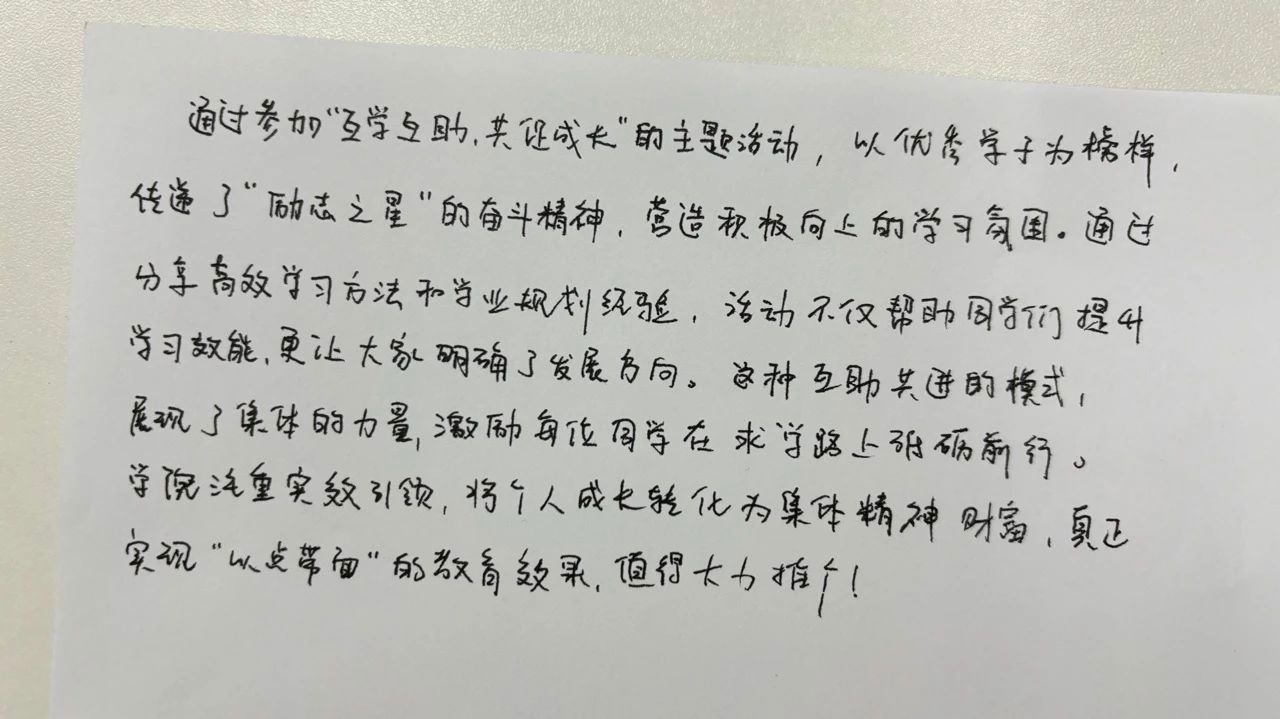 通过参加“互学互助,共促成长”的主题活动,以优秀学子为榜样,
传递了“励志之星”的奋斗精神,营造积极向上的学习氛围。通过
分享高效学习方法和学业规划经验,活动不仅帮助同学们提升
学习效能,更让大家明确了发展方向。这种互助共进的模式,
展现了集体的力量,激励每位同学在求学路上砥砺前行。
学院注重实效引领,将个人成长转化为集体精神财富,真正
实现“以点带面”的教育效果,值得大力推广!